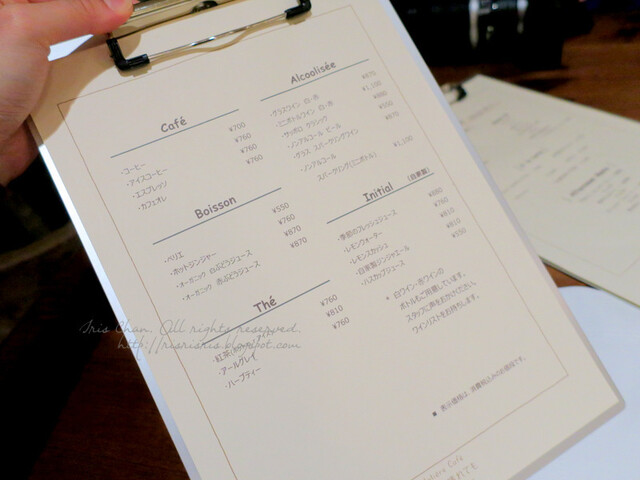 Café
・コーヒー ¥700
・アイスコーヒー ¥760
・エスプレッソ ¥760
・カフェオレ ¥760
Boisson
・ペリエ ¥550
・ホットジンジャー ¥760
・オーガニック 白ぶどうジュース ¥870
・オーガニック 赤ぶどうジュース ¥870
Thé
・紅茶 ¥760
・アールグレイ ¥810
・ハーブティー ¥760
Alcoolisée
・グラスワイン 白・赤 ¥870
・ミニボトルワイン 白・赤 ¥1,100
・サッポロ クラシック
・ノンアルコール ビール
・グラス スパークリングワイン ¥870
・ノンアルコール
スパークリング(ミニボトル) ¥1,100
Initial (自家製)
・季節のフレッシュジュース
・レモンウォーター ¥760
・レモンスカッシュ ¥810
・自家製ジンジャエール ¥810
・ハスカップジュース
* 白ワイン・赤ワインの
ボトルもご用意しています。
スタッフに声をおかけください
ワインリストをお持ちします。
● 表示価格は、消費税込みの価格です。
Iris Chan. All rights reserved.
http://irisirisiris.blogspot.com